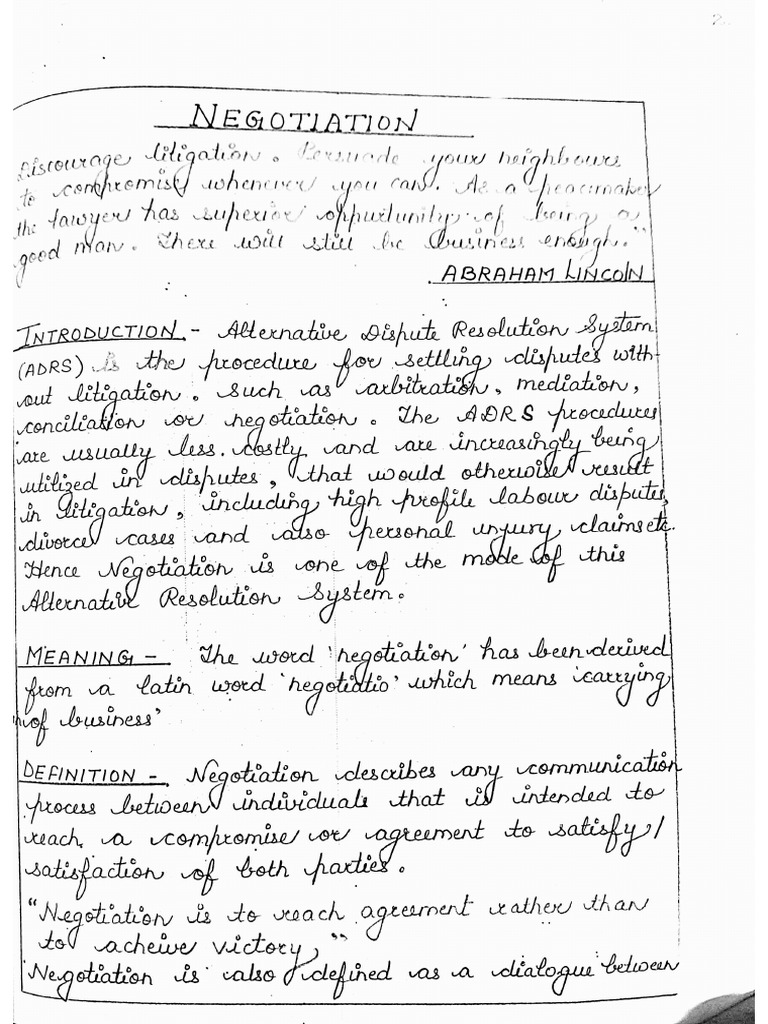 NEGOTIATION
Discourage litigation. Persuade your neighbours
to compromise whenever you can. As a peacemaker
the lawyer has superior oppurtunity of being a
good man. There will still be business enough."
ABRAHAM LINCOLN
INTRODUCTION - Alternative Dispute Resolution System
(ADRS) is the procedure for settling disputes with-
out litigation. Such as arbitration, mediation,
conciliation or negotiation. The ADRS procedures
are usually less costly and are increasingly being
utilized in disputes, that would otherwise result
in litigation, including high profile labour disputes,
divorce cases and also personal injury claims etc.
Hence Negotiation is one of the mode of this
Alternative Resolution System.
MEANING - The word 'negotiation' has been derived
from a latin word 'negotiatio' which means 'carrying
of business'
DEFINITION - Negotiation describes any communication
process between individuals that is intended to
reach a compromise or agreement to satisfy/
satisfaction of both parties.
"Negotiation is to reach agreement rather than
to acheive victory,"
Negotiation is also defined as a dialogue between